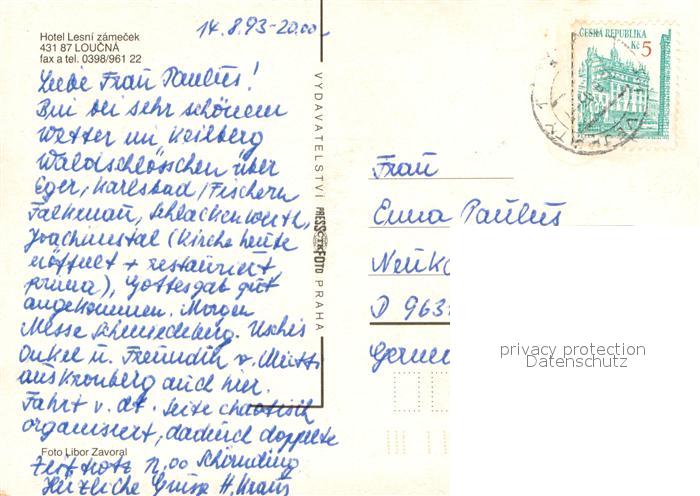 14.8.93-20.00
Hotel Lesní zámeček
431 87 LOUČNÁ
fax a tel. 0398/961 22
Liebe Frau Paulus!
Bin bei sehr schönem
Wetter im Keilberg
Waldschlösschen über
Eger, Karlsbad/Fischern
Falkenau, Schlackenwerth,
Joachimstal (Kirche heute
eröffnet + restauriert,
prima), Gottesgab gut
angekommen. Morgen
Messe Schmiedeberg. Uschis
Onkel u. Freundin v. Mutti
aus Kronberg auch hier.
Fahrt v. dt. Seite chaotisch
organisiert, dadurch doppelte
Foto Libor Zavoral
Zeit trotz
Herzliche Grüsse H. Kraus
VYDAVATELSTVÍ PRESSFOTO PRAHA
ČESKÁ REPUBLIKA
Kč 5
Frau
Erna Paulus
Neuk
D 963
Germ
privacy protection
Datenschutz